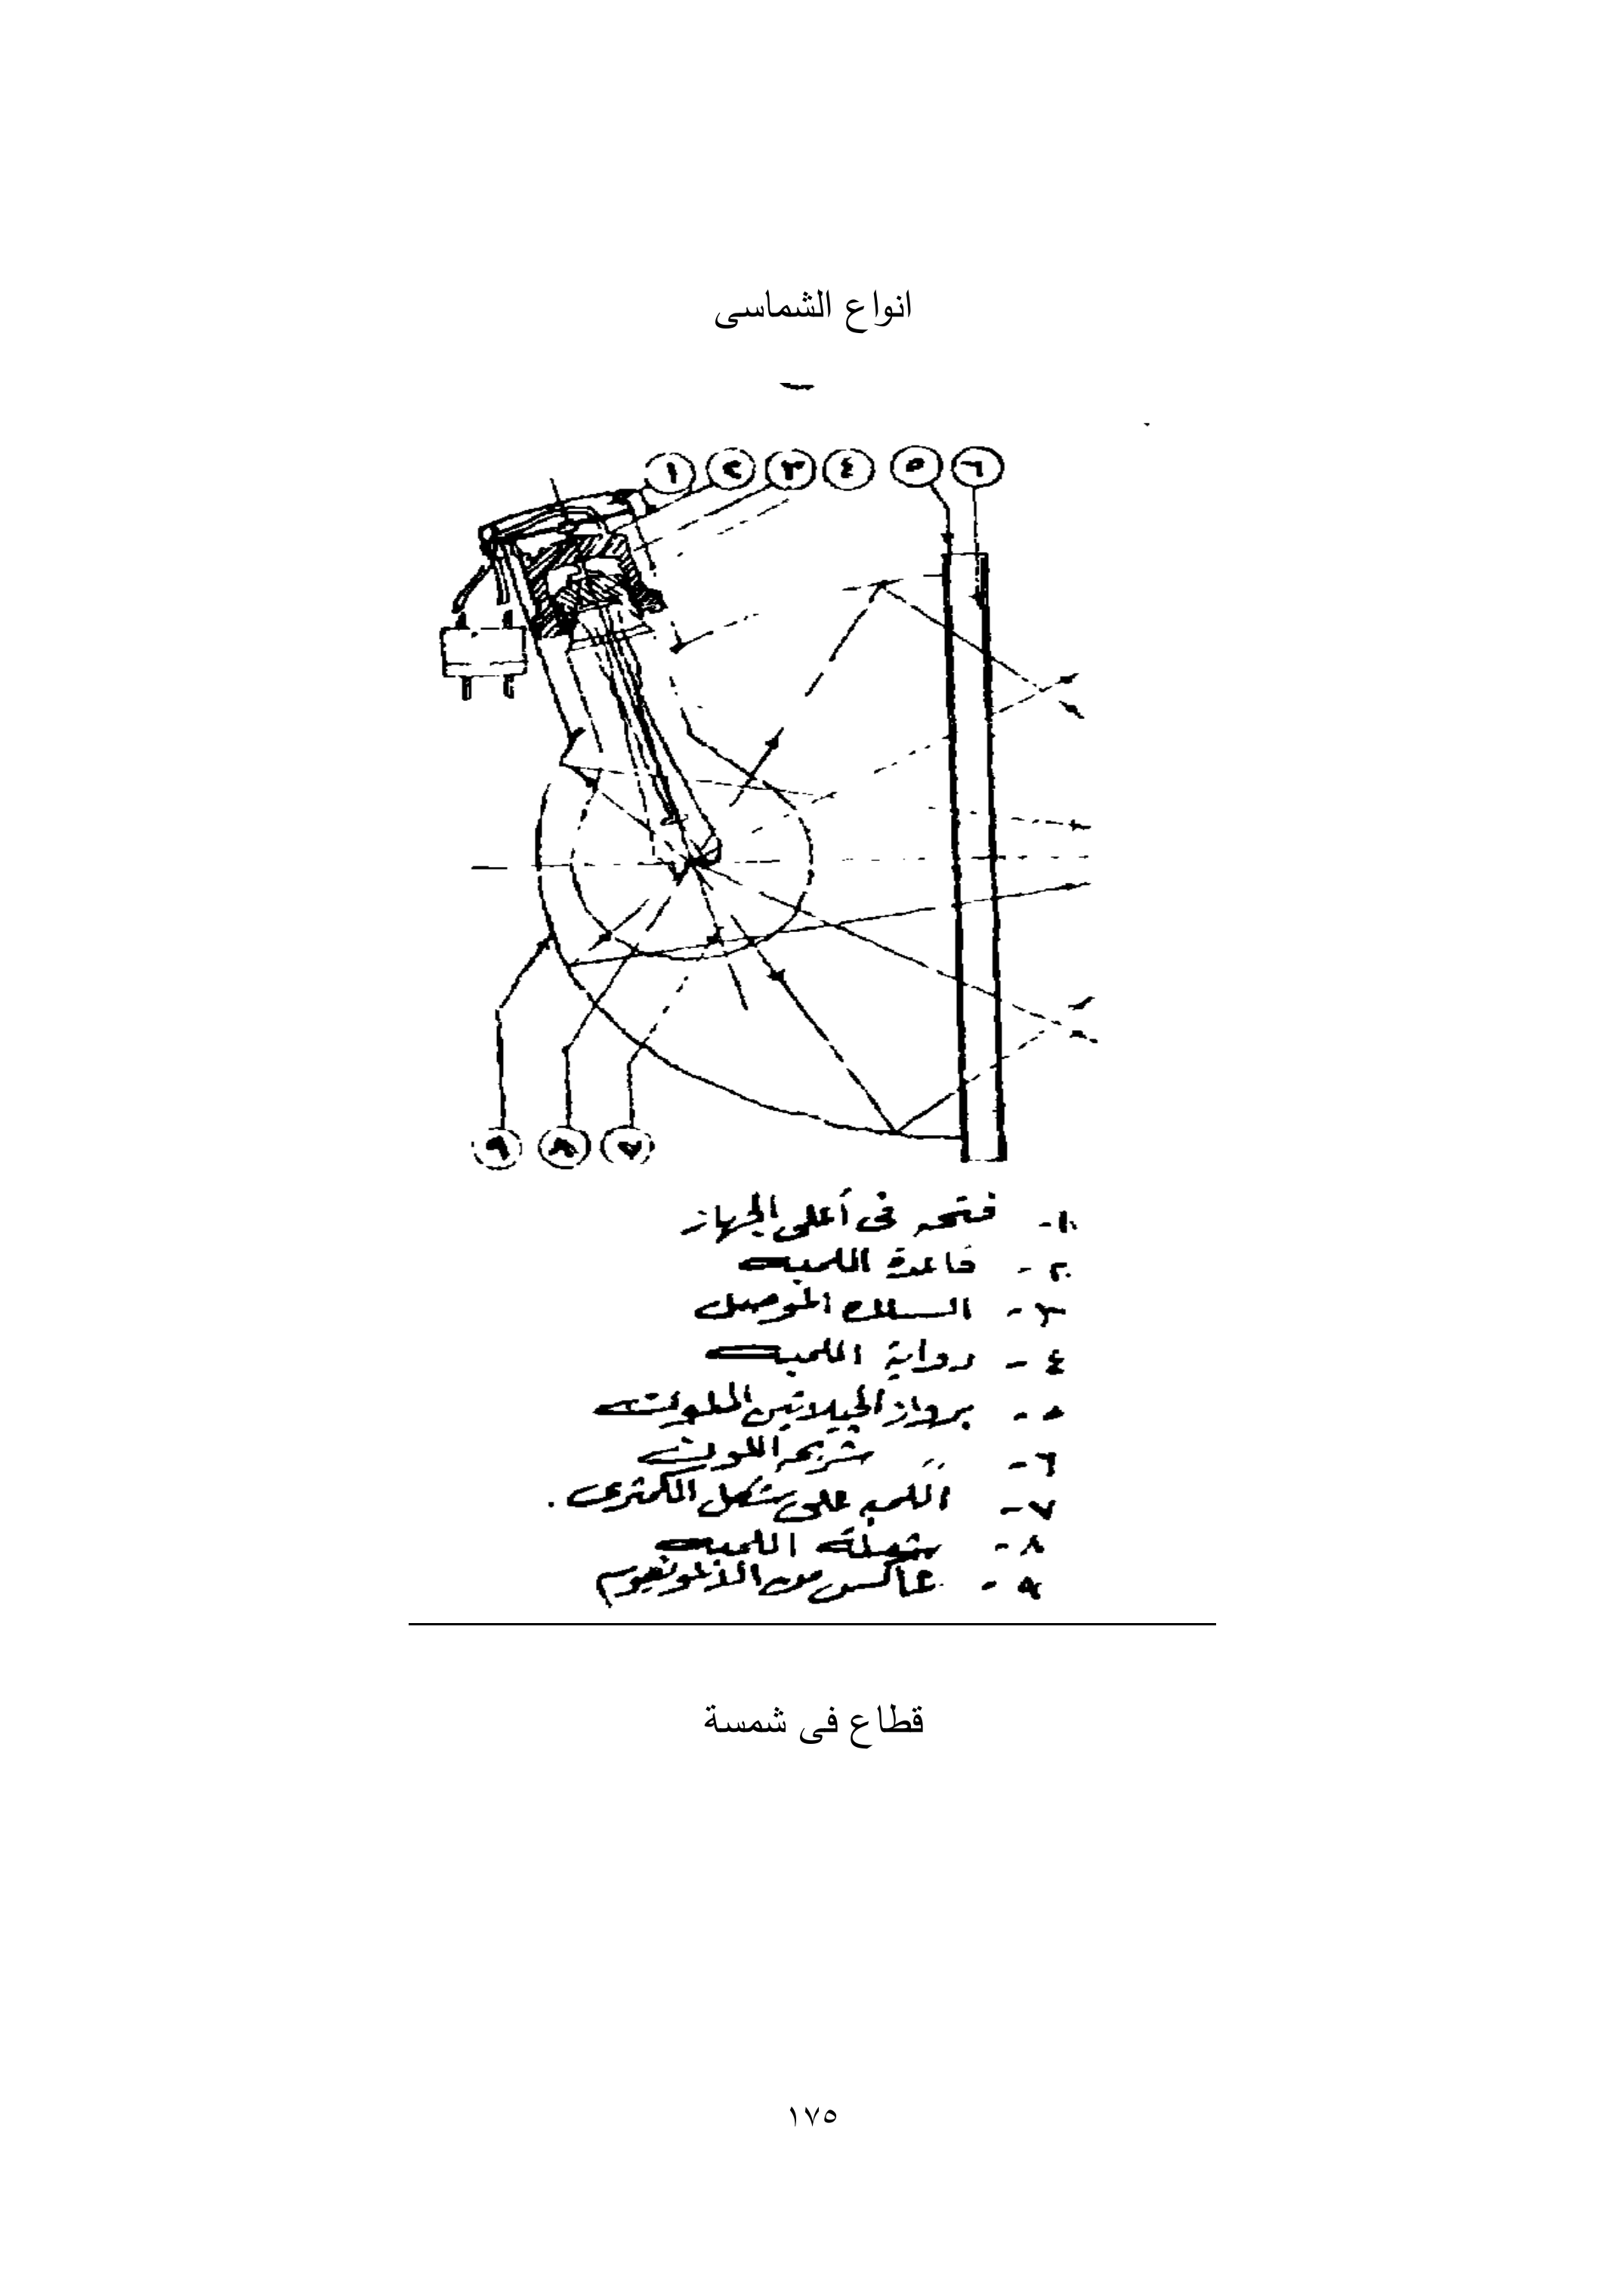 انواع الشماسى
١ ٢ ٣ ٤ ٥ ٦
٩ ٨ ٧
١- فتحه فى أعلى الجهاز
٢- قاعدة اللمبه
٣- السلك الموصل
٤- دواية اللمبه
٥- برواز الجيلاتين الملونه
٦- " شريحه اللون
٧- اللمبه على شكل الكمثرى .
٨- شعلة اللمبه
٩- عاكس من الألمونيوم
قطاع فى شمسة
١٧٥